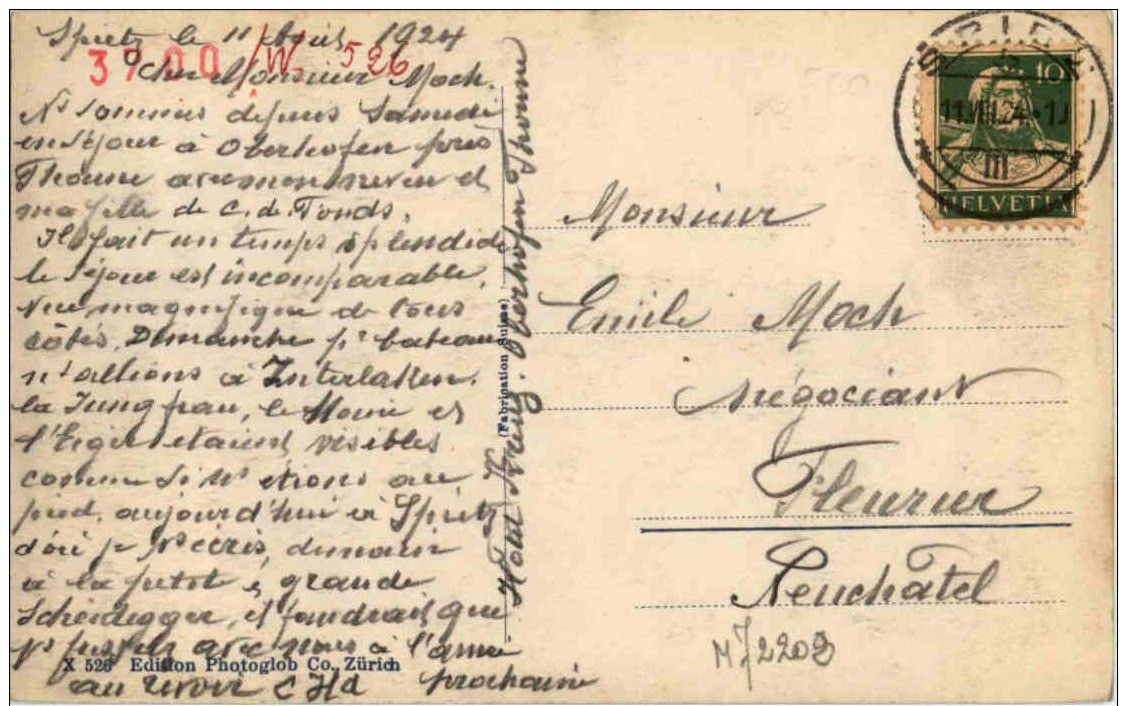 Spiez le 11 Août 1924
3700 /W. 526
Cher Monsieur Moch.
Ns sommes depuis Samedi
en séjour à Oberhofen près
Thoune avec mon neveu et
ma fille de C. de Fonds.
Il fait un temps splendide
le séjour est incomparable,
vue magnifique de tous
côtés. Dimanche pr bateau
ns allions à Interlaken.
la Jungfrau, le Moine et
l'Eiger étaient visibles
comme si ns étions au
pied. aujourd'hui à Spietz
d'où je vs écris, demain
à la petite & grande
Scheidegger, il faudrait que
vs fussiez avec nous à l'année
au revoir C Hd prochaine
X 526 Edition Photoglob Co., Zürich
Hôtel Kreuz. Oberhofen Thoune
(Fabrication Suisse)
SPIEZ
11.VIII.24
III
10
HELVETIA
Monsieur
Emile Moch
négociant
Fleurier
Neuchâtel
M72202